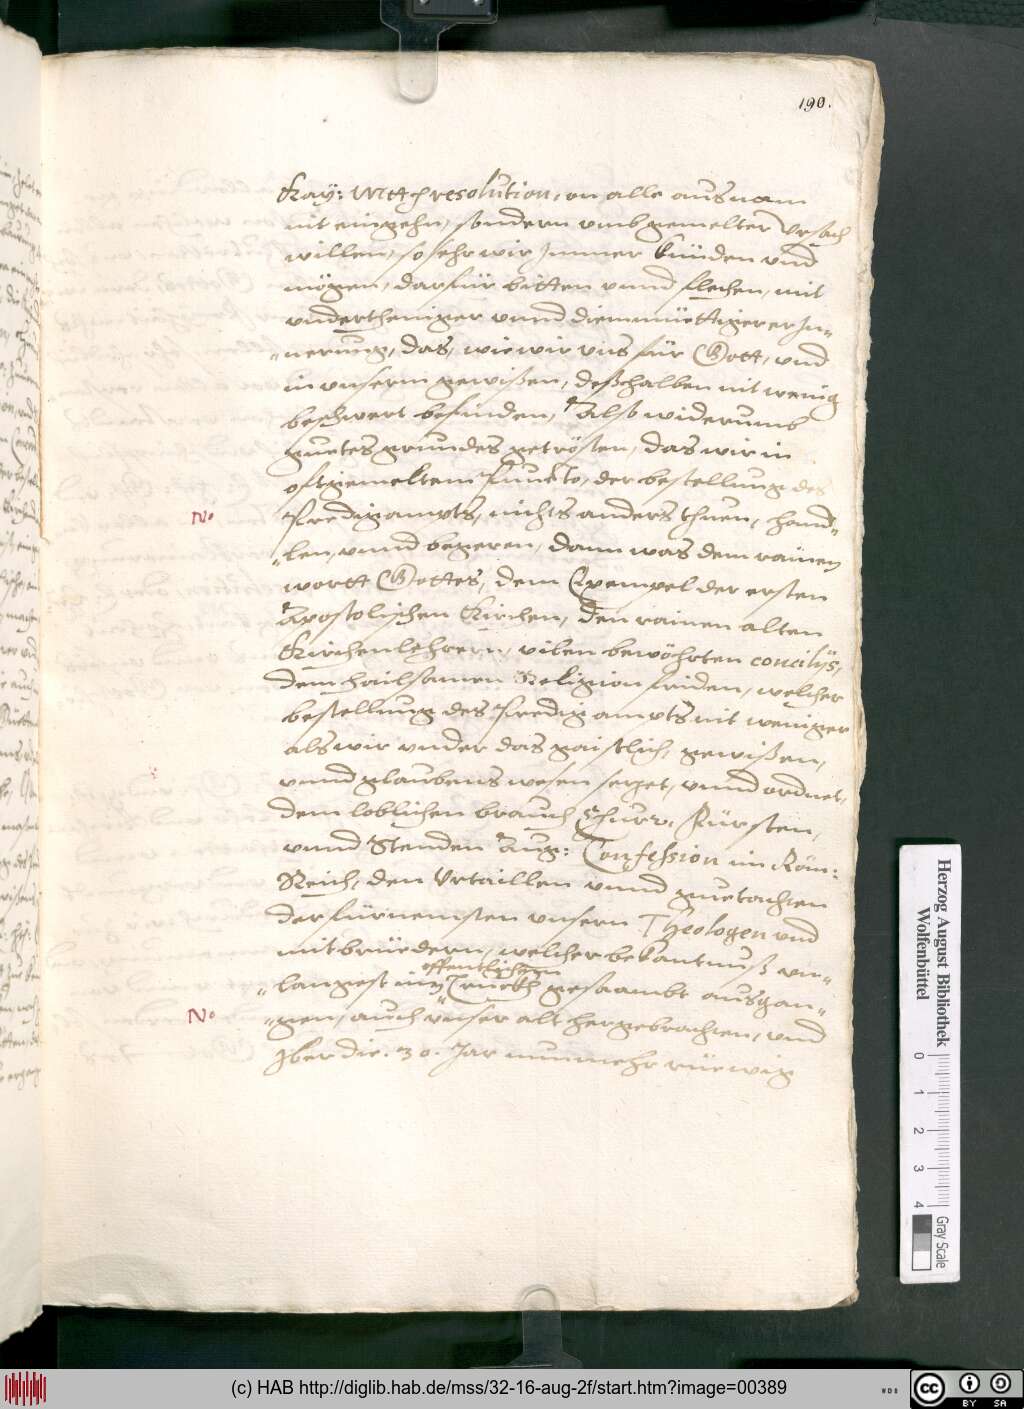 190.
Kay: Mtt: resolution, on alle ausnam
nit eingehn, sondern umb gemelter Ursach
willen, so sehr wir Jmmer künden und
mögen, darfür bitten unnd flechen, mit
undertheniger unnd diemüettiger er Jn-
nerung, das, wie wir uns für Gott, und
in unserm gewißen, deßhalben nit wenig
beschwert befinden, Also widerumb
guetes grundes getrösten, das wir in
offtgemeltem Puncto, der bestellung des
No
Predigampts, nichts anders thuen, hand-
len, unnd begeren, dann was dem rainen
wortt Gottes, dem Exempel der ersten
Apostolischen Kirchen, den rainen alten
Kirchenlehrern, uiben bewährten concilijs,
dem hailsamen Religion friden, welcher
bestellung des Predig ampts nit weniger
als wir under das gaistlich, gewißen,
unnd glaubens wesen sezet, unnd ordnet,
dem loblichen brauch Churr: Fürsten,
unnd Stenden Aug: Confession im Röm:
Reich, den Urtaillen unnd guetachten
der fürnemsten unsern Theologen und
mitbrüedern, welcher bekantnuß un-
offentlichem
langest im Truckh gesaambt ausgan-
No
gen, auch unser alt hergebrachten, und
Jber die. 30. Jar nunmehr rüewig
Herzog August Bibliothek
Wolfenbüttel
0 1 2 3 4
Gray Scale
(c) HAB http://diglib.hab.de/mss/32-16-aug-2f/start.htm?image=00389
WDB
cc BY SA